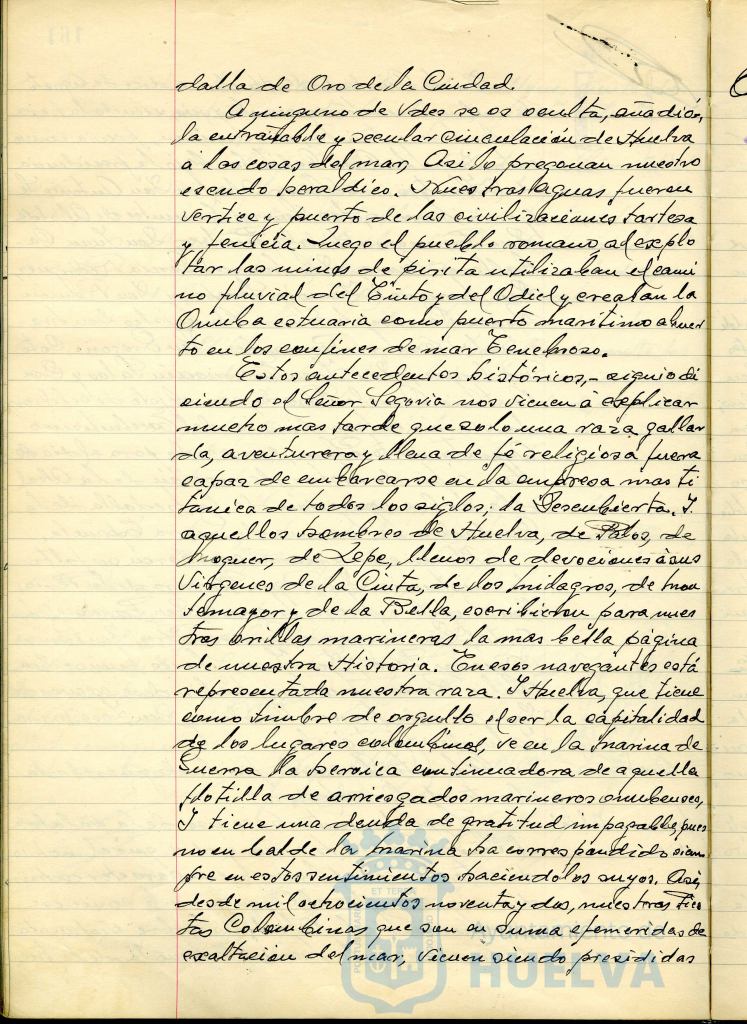 dalla de Oro de la Ciudad.
A ninguno de Vdes se os oculta, añadió,
la entrañable y secular vinculación de Huelva
a las cosas del mar, Asi lo pregonan nuestro
escudo heraldico. Nuestras aguas fueron
vertice y puerto de las civilizaciones tartesa
y fenicia. Luego el pueblo romano, al explo
tar las minas de pirita utilizaban el cami
no fluvial del Tinto y del Odiel y creaban la
Onuba estuaria como puerto maritimo abier
to en los confines de mar Tenebroso.
Estos antecedentes históricos,- siguió di
ciendo el Señor Segovia nos vienen à explicar
mucho mas tarde que solo una raza gallar
da, aventurera y llena de fé religiosa fuera
capaz de embarcarse en la empresa mas ti
tánica de todos los siglos; la Descubierta. Y
aquellos hombres de Huelva, de Palos, de
Moguer, de Lepe, llenos de devociones à sus
Virgenes de la Cinta, de los Milagros, de Mon
temayor y de la Bella, escribieron para nues
tras orillas marineras la mas bella página
de nuestra Historia. En esos navegantes está
representada nuestra raza. Y Huelva, que tiene
como timbre de orgullo el ser la capitalidad
de los lugares colombinos, ve en la Marina de
Guerra la heroica continuadora de aquella
flotilla de arriesgados marineros onubenses,
Y tiene una deuda de gratitud impagable, pues
no en balde la Marina ha correspondido siem
pre en estos sentimientos haciendolos suyos. Asi,
desde mil ochocientos noventa y dos, nuestras Fies
tas Colombinas que son en suma efemerides de
exaltación del mar, vienen siendo presididas
Ayuntamiento de
HUELVA